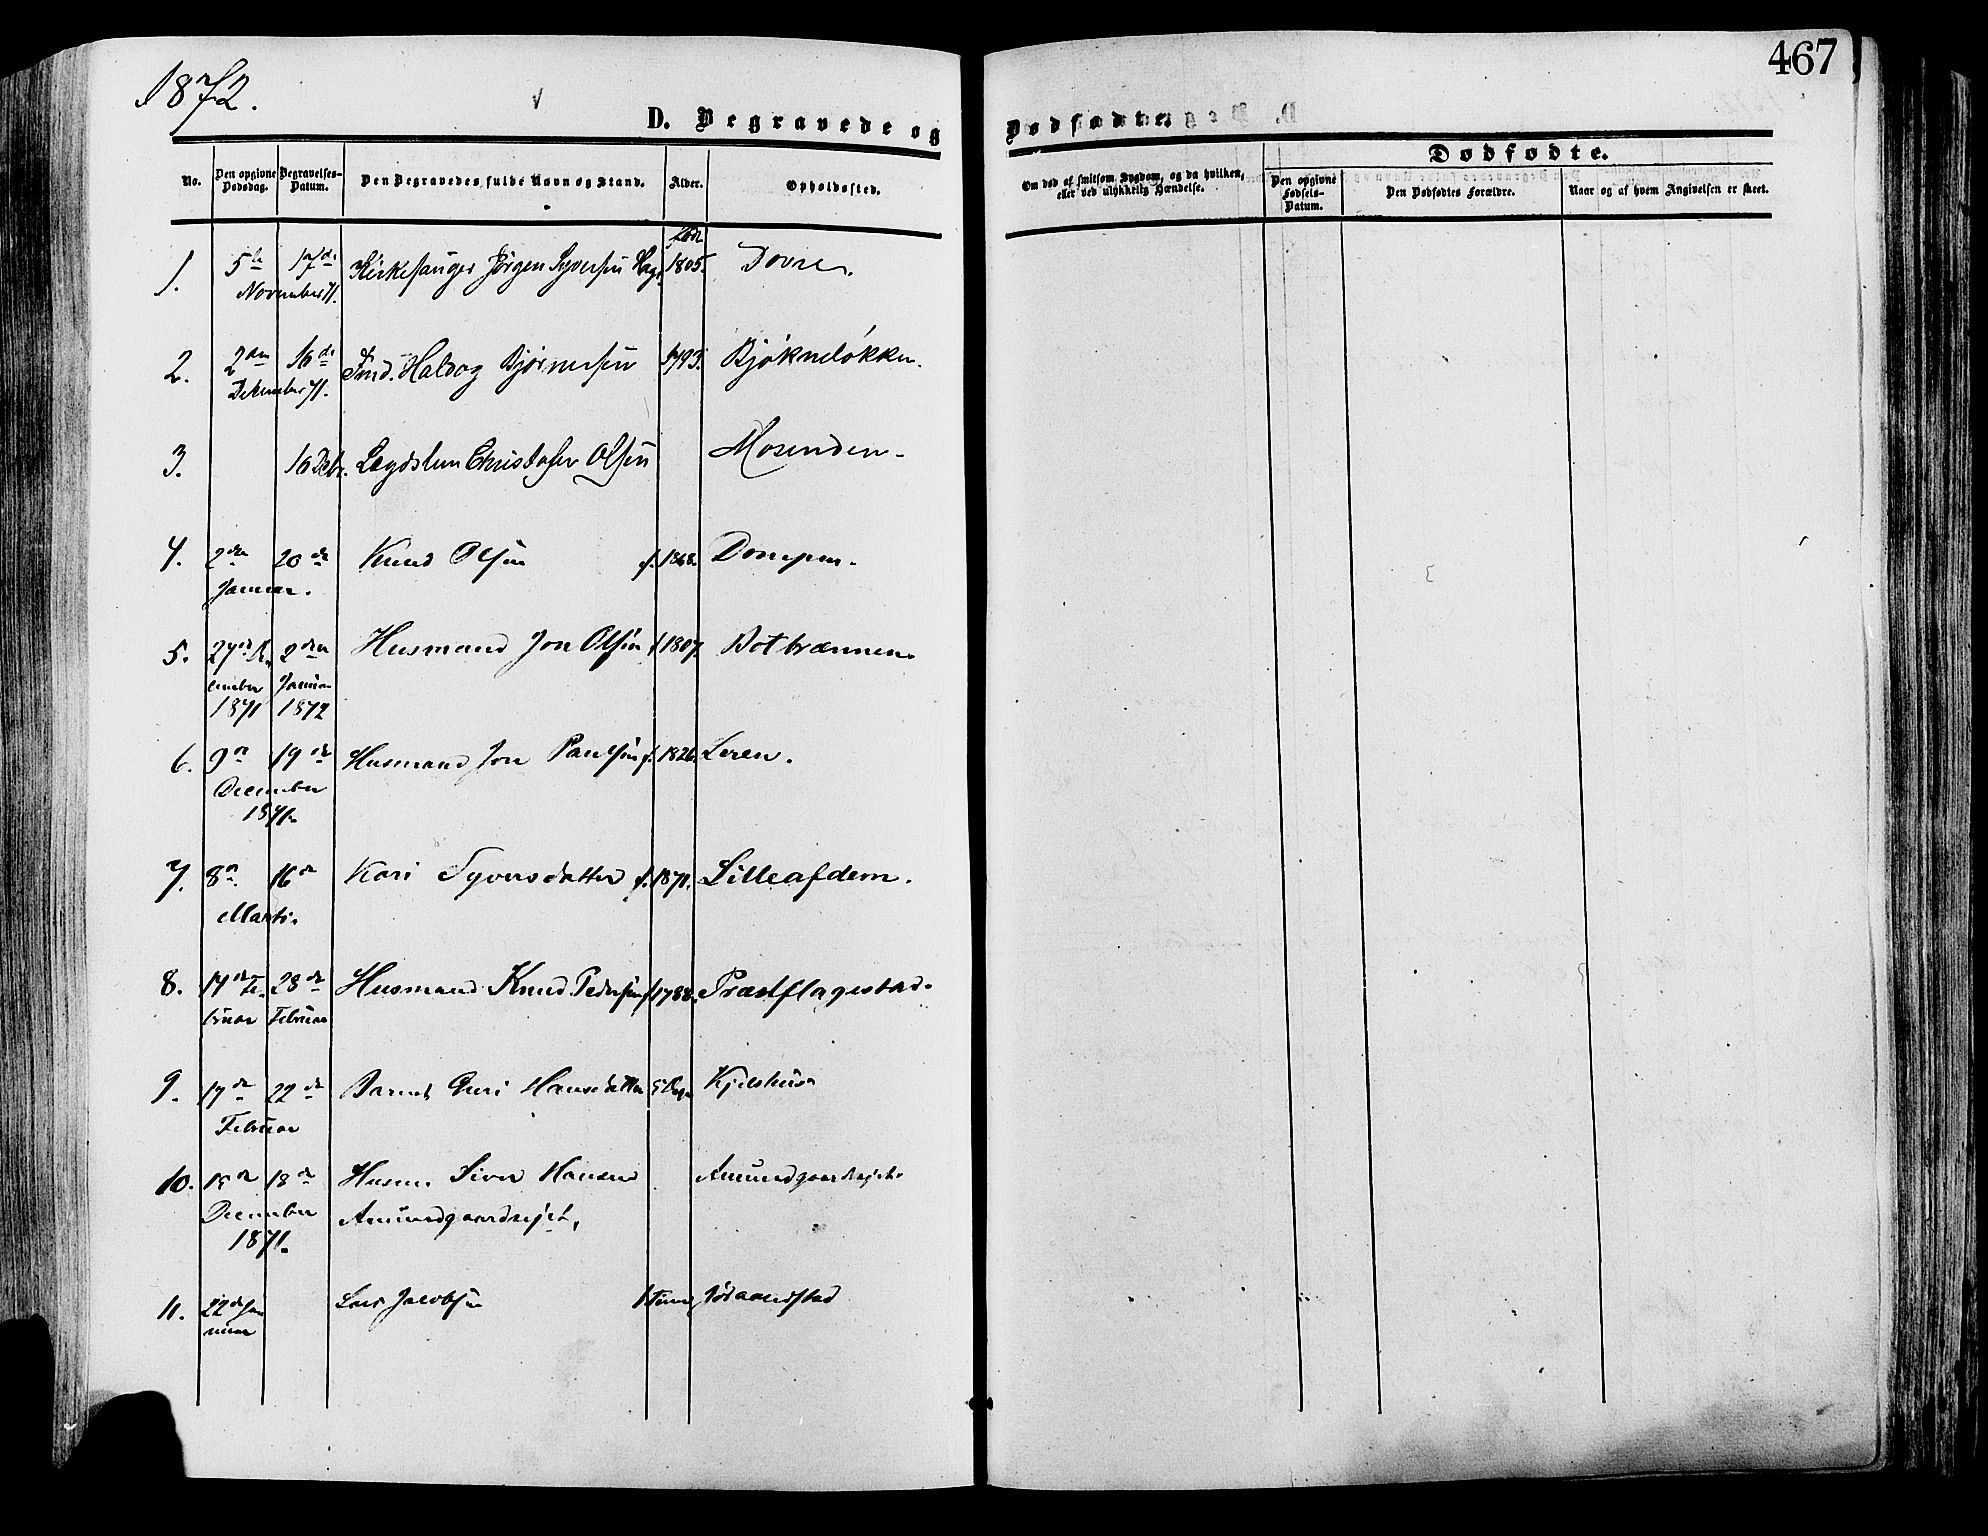 467
1872.
D. Begravede og Dødfødte.
No. Den opgivne Dødsdag. Begravelses-Datum. Den Begravedes fulde Navn og Stand. Alder. Opholdssted. Om død af smitsom Sygdom, og da hvilken, eller ved ulykkelig Hændelse.
Dødfødte.
Den opgivne Fødsels-Datum. Den Dødfødtes Forældre. Naar og af hvem Angivelsen er skeet.
født
1. 5te 17de Kirkesanger Jørgen Syversen 1805. Dovre.
November 71.
2. 2den 16de Haldog Bjørnersen 1793. Bjøkneløkken.
Dekember 71.
3. 16 Debr. Lægdslem Christofer Olsen Mosenden.
4. 2den 20de Knud Olsen f. 1868. Dompen.
Januar.
5. 27de De- 2den Husmand Jon Olsen f 1807. Botbrænnen.
cember Januar
1871 1872
6. 9n 19de Husmand Jon Paulsen f. 1826. Leren.
December
1871.
7. 8n 16n Kari Syversdatter f. 1871. Lilleafdem.
Marts.
8. 14de Fe- 28de Husmand Knud Pedersen f 1788. Præstflagestad.
bruar Februar
9. 17de 22de Barnet Guri Hansdatter Kjelshus
Februar
10. 15de 18de Husm. Siver Hansen Amundgaardsejet.
December Amundgaardsejet,
1871.
11. 22de Ja- Lars Jacobsen Jøraandstad
nuar